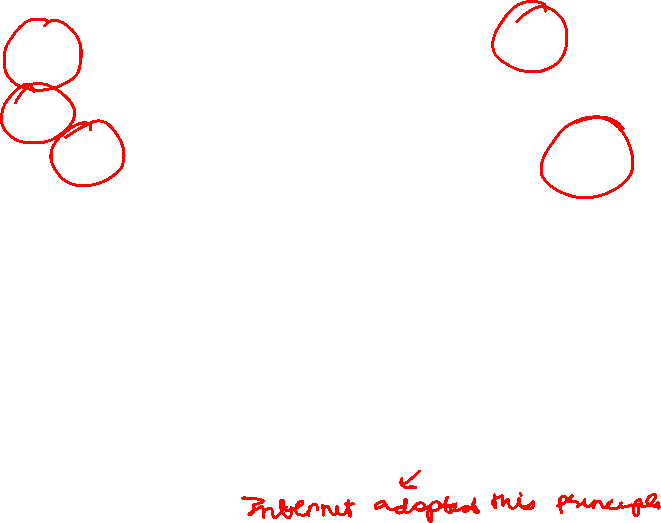 Internet adopted this principle